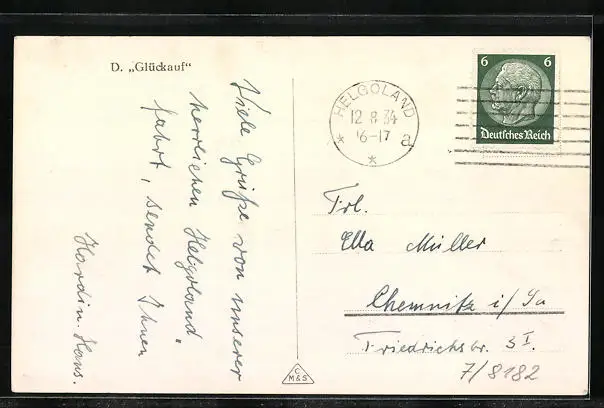 D. „Glückauf“
Viele Grüße von unserer
herrlichen Helgoland,
fahrt, sendet Ihnen
Hans.
HELGOLAND
12 8 34
16-17 a
6 6
Deutsches Reich
Frl.
Ella Müller
Chemnitz i/Sa
Friedrichstr. 3 I.
7/8182
C
M&S